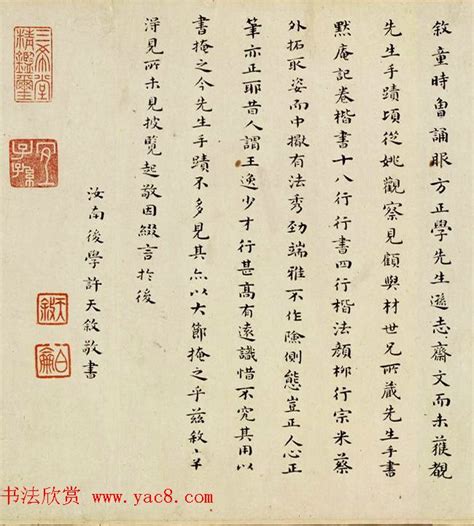 敘童時曾誦眼方正學先生遜志齋文而未獲觀
先生手蹟頃從姚觀察見顧與材世兄所藏先生手書
默庵記卷楷書十八行行書四行楷法顏柳行宗米蔡
外拓取姿而中擫有法秀勁端雅不作險側態豈正人心正
筆亦正耶昔人謂王逸少才行甚高有遠識惜不究其用以
書掩之今先生手蹟不多見其亦以大節掩之乎茲敘
得見所未見披覽起敬因綴言於後
汝南後學許天敘敬書
三希堂
精鑑璽
宜
子孫
天
白
書法欣赏 www.yac8.com